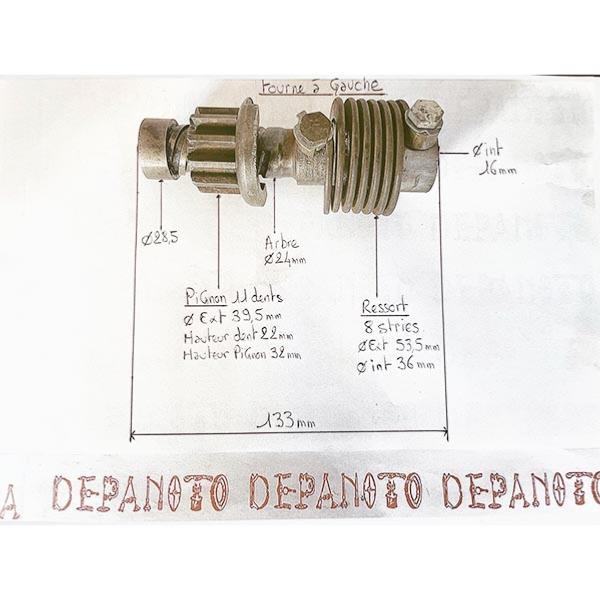 Tourne à Gauche
Ø int
16mm
Ø28,5
Arbre
Ø24mm
Pignon 11 dents
Ø Ext 39,5mm
Hauteur dent 22mm
Hauteur Pignon 32mm
Ressort
8 stries
ØExt 53,5mm
Ø int 36mm
133mm
A DEPANOTO DEPANOTO DEPANOTO